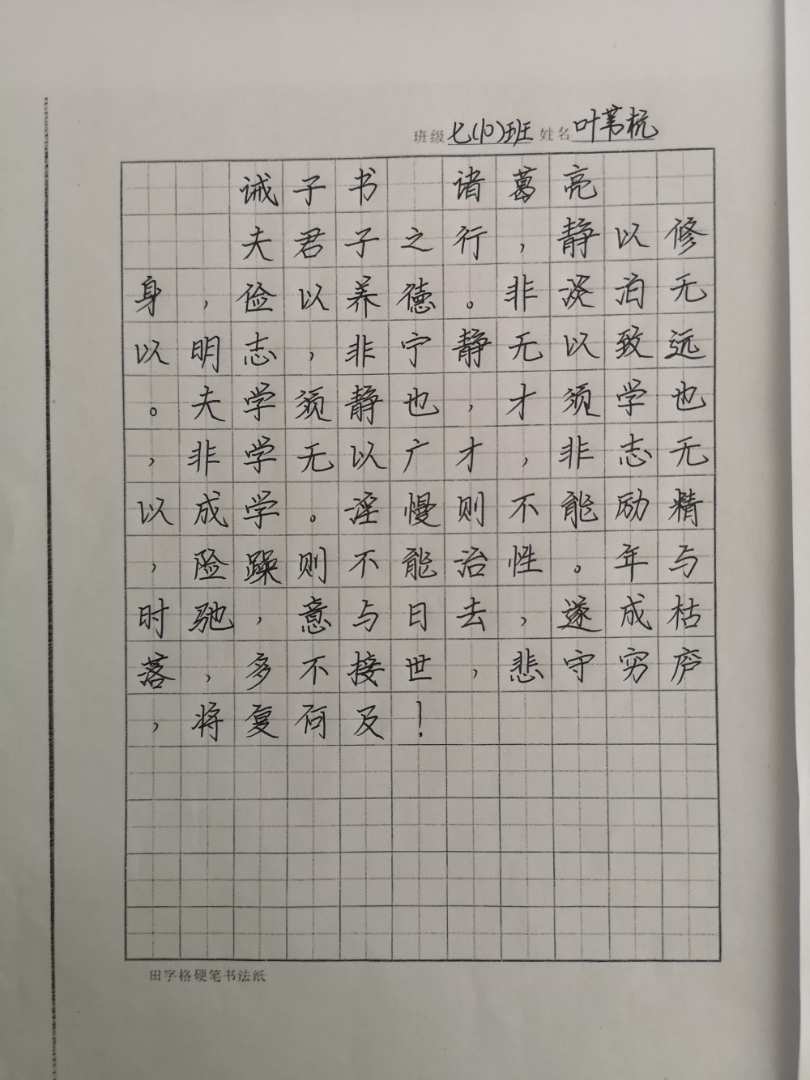 班级 七(10)班 姓名 叶苇杭
诫子书 诸葛亮
夫君子之行，静以修
身，俭以养德。非淡泊无
以明志，非宁静无以致远
。夫学须静也，才须学也
，非学无以广才，非志无
以成学。淫慢则不能励精
，险躁则不能治性。年与
时驰，意与日去，遂成枯
落，多不接世，悲守穷庐
，将复何及！
田字格硬笔书法纸